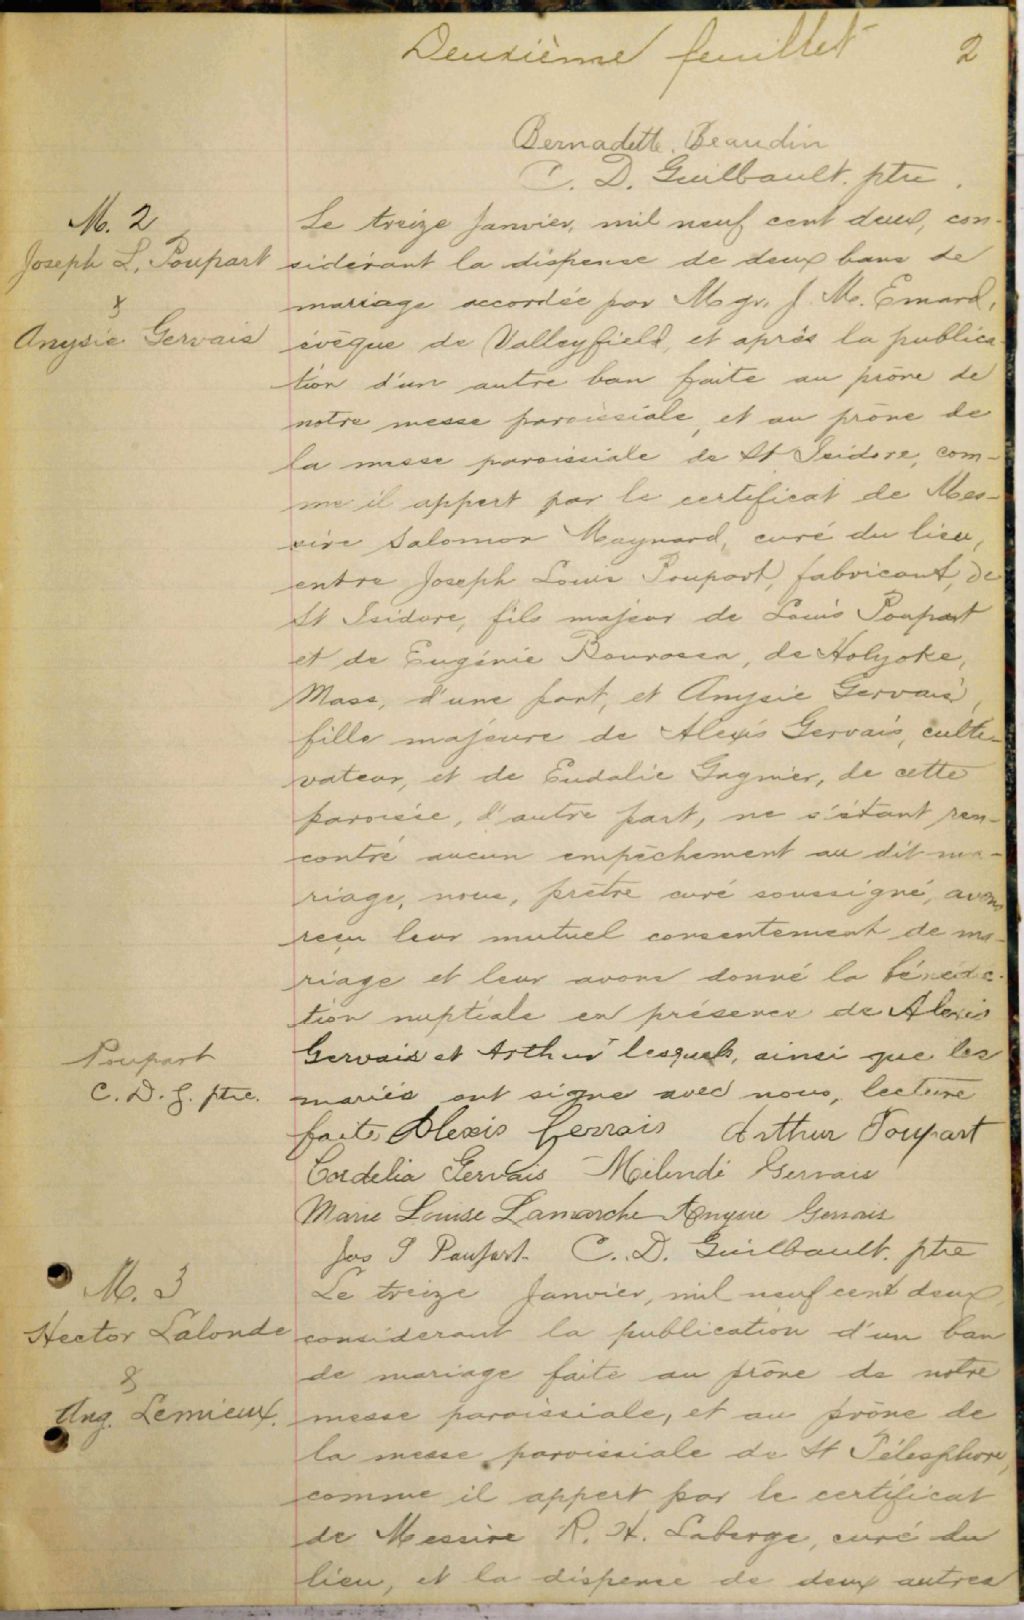 Deuxième feuillet 2
Bernadette Beaudin
C. D. Guilbault. ptre.
M. 2
Joseph L. Poupart
&
Anysie Gervais
Le treize Janvier, mil neuf cent deux, con-
sidérant la dispense de deux bans de
mariage accordée par Mgr. J. M. Emard,
évêque de Valleyfield, et après la publica-
tion d'un autre ban faite au prône de
notre messe paroissiale, et au prône de
la messe paroissiale de St Isidore, com-
me il appert par le certificat de Mes-
sire Salomon Maynard, curé du lieu,
entre Joseph Louis Poupart, fabricant, de
St Isidore, fils majeur de Louis Poupart
et de Eugénie Bourassa, de Holyoke,
Mass, d'une part, et Anysie Gervais,
fille majeure de Alexis Gervais, culti-
vateur, et de Eudalie Gagnier, de cette
paroisse, d'autre part, ne s'étant ren-
contré aucun empêchement au dit ma-
riage, nous, prêtre curé soussigné, avons
reçu leur mutuel consentement de ma-
riage et leur avons donné la bénédic-
tion nuptiale en présence de Alexis
Poupart
C. D. G. ptre.
Gervais et Arthur lesquels, ainsi que les
mariés ont signé avec nous, lecture
faite, Alexis Gervais Arthur Poupart
Cordelia Gervais Gervais
Marie Louise Lamarche Anysie Gervais
Jos Poupart. C. D. Guilbault. ptre
M. 3
Hector Lalonde
&
Ang. Lemieux.
Le treize Janvier, mil neuf cent deux,
considerant la publication d'un ban
de mariage faite au prône de notre
messe paroissiale, et au prône de
la messe paroissiale de St Télesphore,
comme il appert par le certificat
de Messire R. H. Laberge, curé du
lieu, et la dispense de deux autres